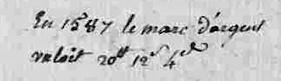 En 1587 le marc d'argent
valoit 20ᵗᵗ 12ˢ 4ᵈ